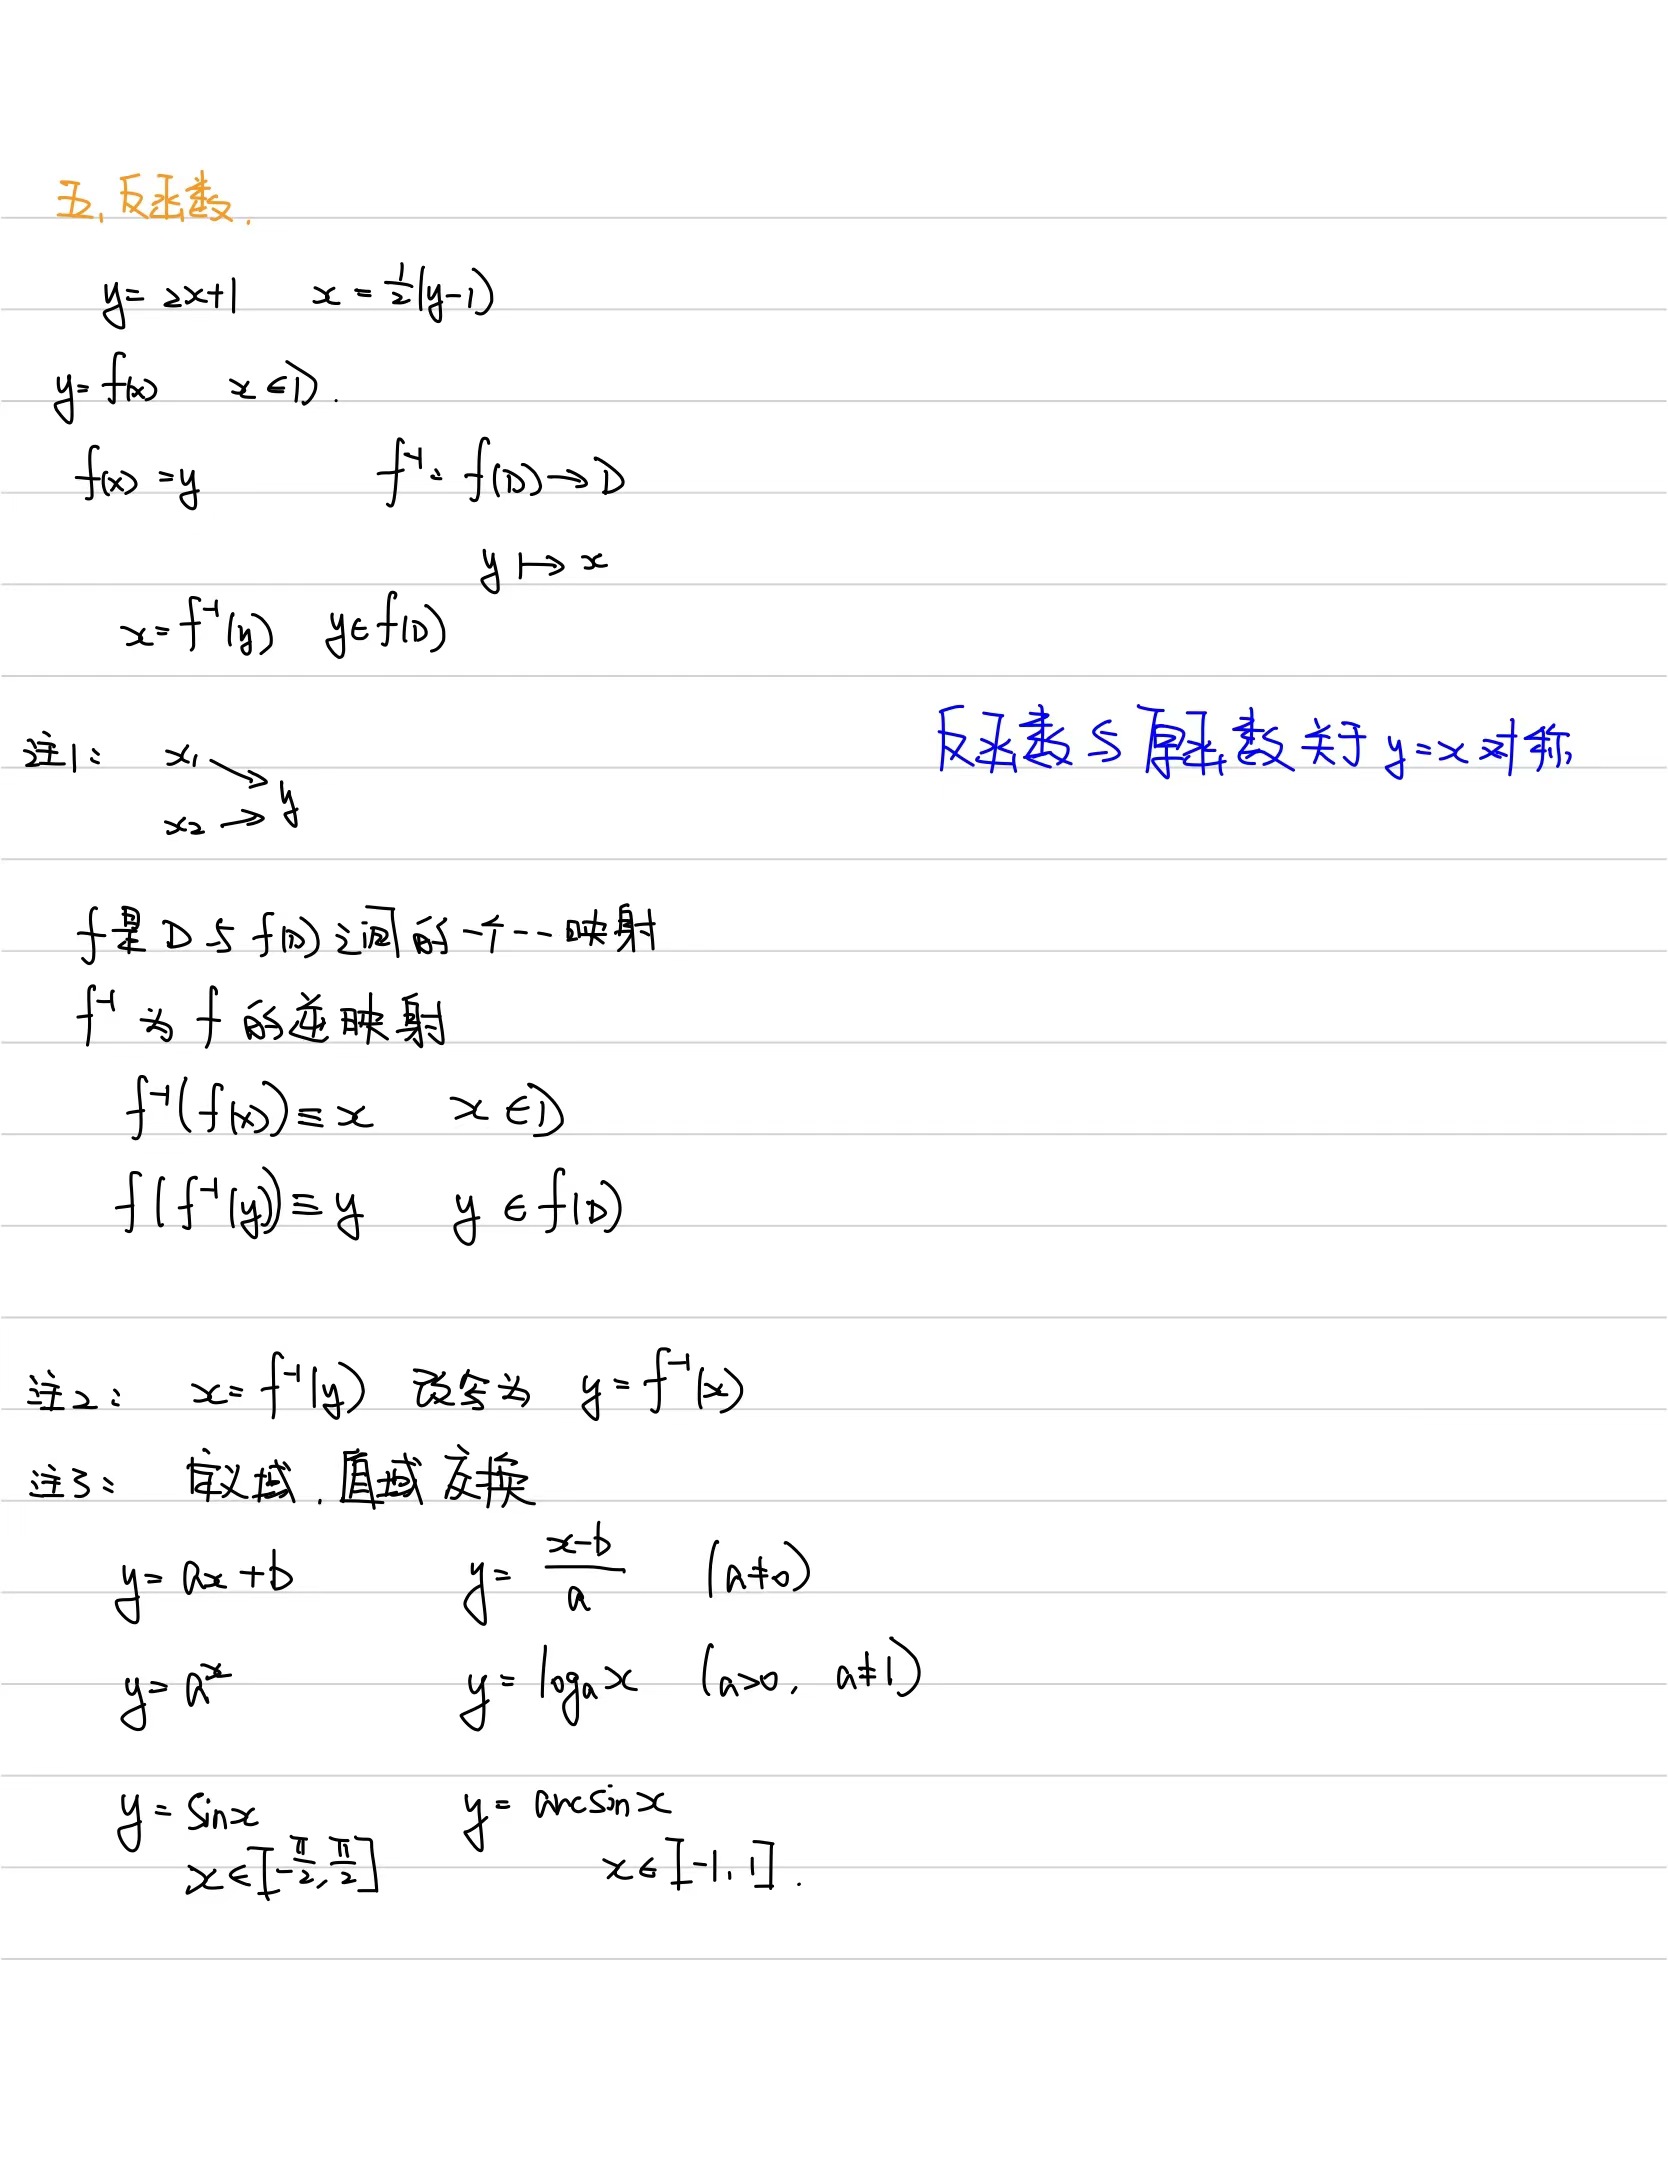 五、反函数.
y = 2x+1  x = 1/2(y-1)
y = f(x)  x ∈ D.
f(x) = y  f⁻¹: f(D) → D
y ↦ x
x = f⁻¹(y)  y ∈ f(D)
注1: x₁ → y
x₂ →
反函数与原函数关于 y=x 对称
f是 D 与 f(D) 之间的一个一一映射
f⁻¹ 为 f 的逆映射
f⁻¹(f(x)) ≡ x  x ∈ D
f(f⁻¹(y)) ≡ y  y ∈ f(D)
注2: x = f⁻¹(y) 改写为 y = f⁻¹(x)
注3: 定义域, 值域 交换
y = ax+b  y = (x-b)/a  (a≠0)
y = aˣ  y = logₐx  (a>0, a≠1)
y = sinx  y = arcsinx
x ∈ [-π/2, π/2]  x ∈ [-1, 1].